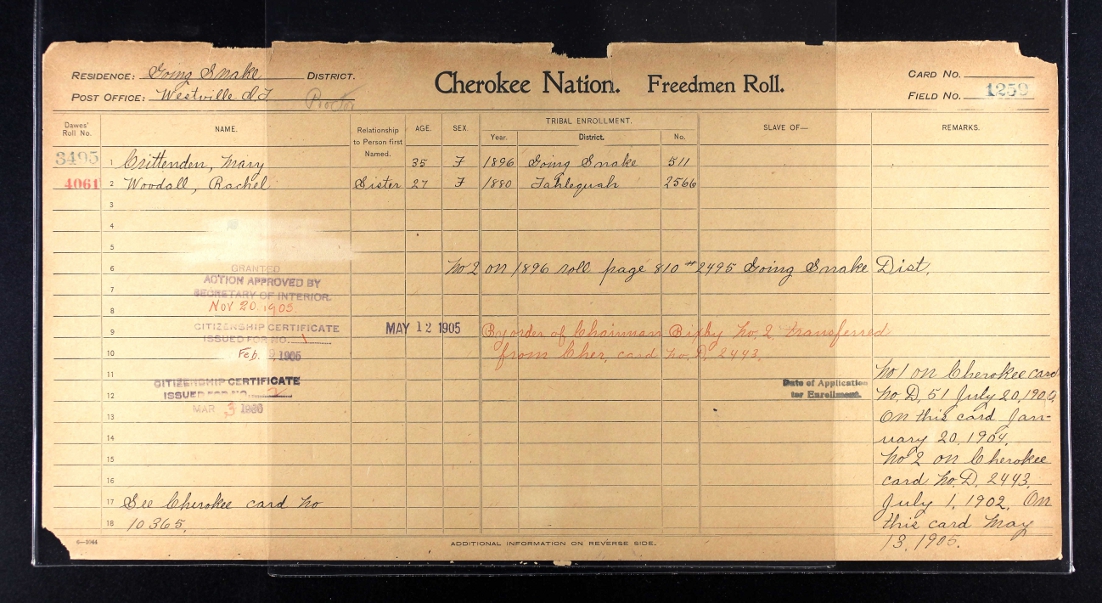 RESIDENCE: Going Snake DISTRICT.
POST OFFICE: Westville I.T. Proctor
Cherokee Nation. Freedmen Roll.
CARD NO.
FIELD NO. 1259
Dawes' Roll No. NAME. Relationship to Person first Named. AGE. SEX. TRIBAL ENROLLMENT. Year. District. No. SLAVE OF— REMARKS.
3495 1 Crittenden, Mary 35 F 1896 Going Snake 511
4061 2 Woodall, Rachel Sister 27 F 1880 Tahlequah 2566
3
4
5
6 No 2 on 1896 roll page 810 # 2495 Going Snake Dist.
GRANTED
ACTION APPROVED BY
7
SECRETARY OF INTERIOR.
8
Nov 20, 1905
9 MAY 12 1905 By order of Chairman Bixby No. 2 transferred
CITIZENSHIP CERTIFICATE
ISSUED FOR NO. 1
10 from Cher. card No. D. 2443.
Feb. 1905
11 No 1 on Cherokee card
CITIZENSHIP CERTIFICATE
Date of Application
12 No. D. 51 July 20, 1900.
ISSUED FOR NO. 2
for Enrollment.
MAR 3
13 On this card Jan-
14 uary 20, 1904.
15 No 2 on Cherokee
16 card No. D. 2443.
17 See Cherokee card No July 1, 1902. On
18 10365. this card May
13, 1905.
ADDITIONAL INFORMATION ON REVERSE SIDE.